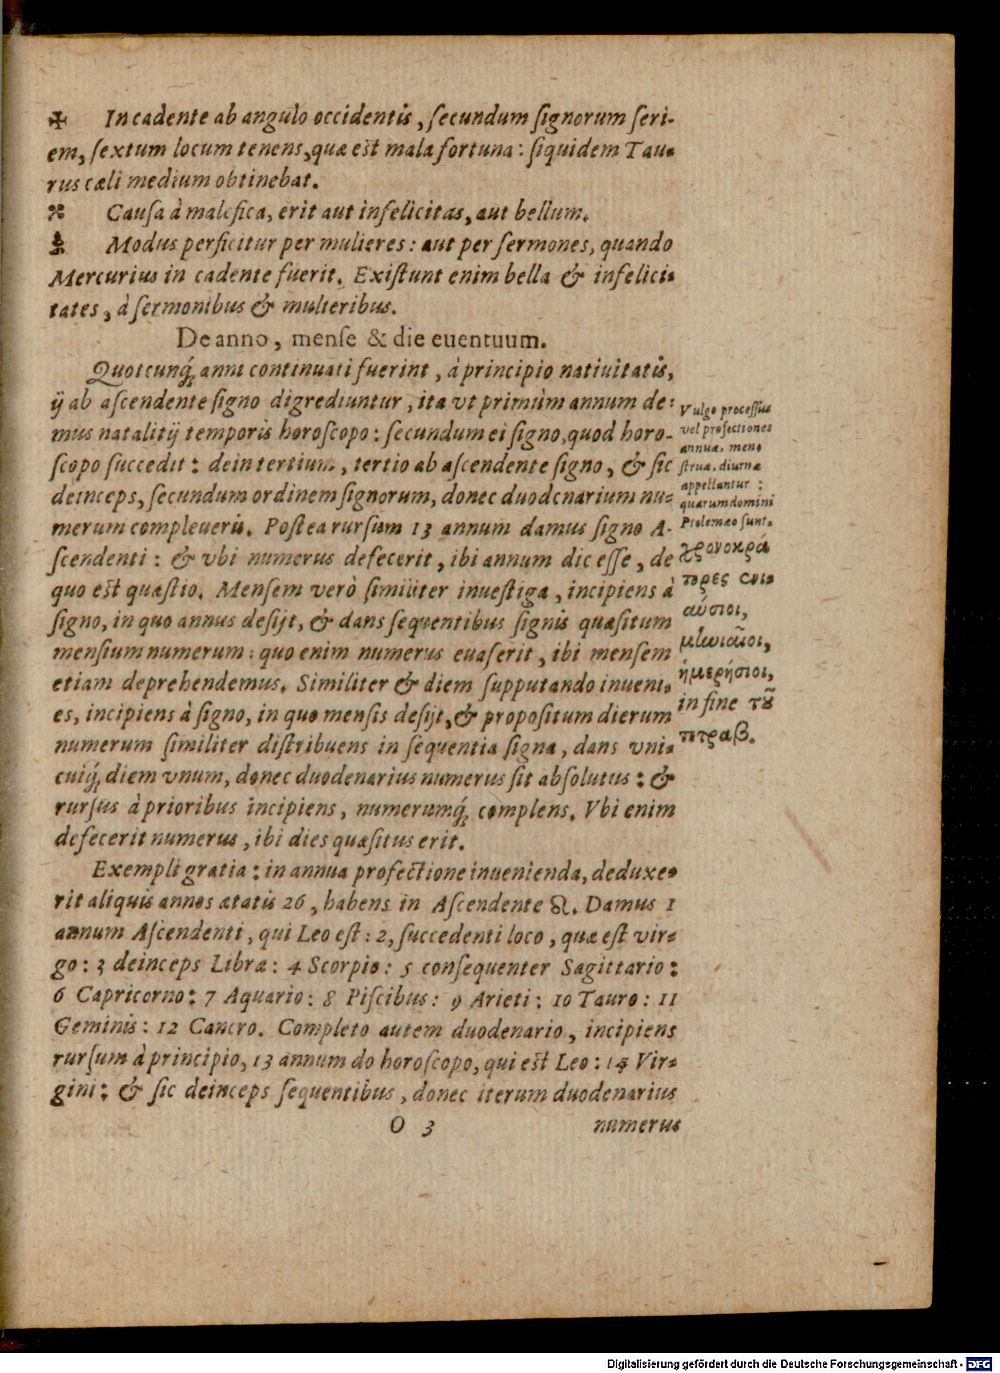 ✠ In cadente ab angulo occidentis, ſecundum ſignorum ſeri-
em, ſextum locum tenens, quæ eſt mala fortuna: ſiquidem Tau-
rus cæli medium obtinebat.
Cauſa à malefica, erit aut infelicitas, aut bellum.
Modus perficitur per mulieres: aut per ſermones, quando
Mercurius in cadente fuerit. Exiſtunt enim bella & infelici-
tates, à ſermonibus & mulieribus.
De anno, menſe & die euentuum.
Quotcunq; anni continuati fuerint, à principio natiuitatis,
ij ab aſcendente ſigno digrediuntur, ita vt primùm annum de-
mus natalitij temporis horoſcopo: ſecundum ei ſigno, quod horo-
ſcopo ſuccedit: dein tertium, tertio ab aſcendente ſigno, & ſic
deinceps, ſecundum ordinem ſignorum, donec duodenarium nu-
merum compleueris. Poſtea rurſum 13 annum damus ſigno A-
ſcendenti: & vbi numerus defecerit, ibi annum dic eſſe, de
quo eſt quæſtio. Menſem verò ſimiliter inueſtiga, incipiens à
ſigno, in quo annus deſijt, & dans ſequentibus ſignis quæſitum
menſium numerum: quo enim numerus euaſerit, ibi menſem
etiam deprehendemus. Similiter & diem ſupputando inueni-
es, incipiens à ſigno, in quo menſis deſijt, & propoſitum dierum
numerum ſimiliter diſtribuens in ſequentia ſigna, dans vni-
cuiq; diem vnum, donec duodenarius numerus ſit abſolutus: &
rurſus à prioribus incipiens, numerumq; complens. Vbi enim
defecerit numerus, ibi dies quæſitus erit.
Vulgo proceſſus
vel profectiones
annuæ, men-
ſtruæ, diurnæ
appellantur:
quarum domini
Ptolemæo ſunt,
χρονοκρά
τορες ἐνι-
αύσιοι,
μηνιαῖοι,
ἡμερήσιοι,
in fine τȣ͂
τετραβ.
Exempli gratia: in annua profectione inuenienda, deduxe-
rit aliquis annos ætatis 26, habens in Aſcendente ♌. Damus 1
annum Aſcendenti, qui Leo eſt: 2, ſuccedenti loco, quæ eſt vir-
go: 3 deinceps Libræ: 4 Scorpio: 5 conſequenter Sagittario:
6 Capricorno: 7 Aquario: 8 Piſcibus: 9 Arieti: 10 Tauro: 11
Geminis: 12 Cancro. Completo autem duodenario, incipiens
rurſum à principio, 13 annum do horoſcopo, qui eſt Leo: 14 Vir-
gini: & ſic deinceps ſequentibus, donec iterum duodenarius
O 3 numerus
Digitalisierung gefördert durch die Deutsche Forschungsgemeinschaft - DFG